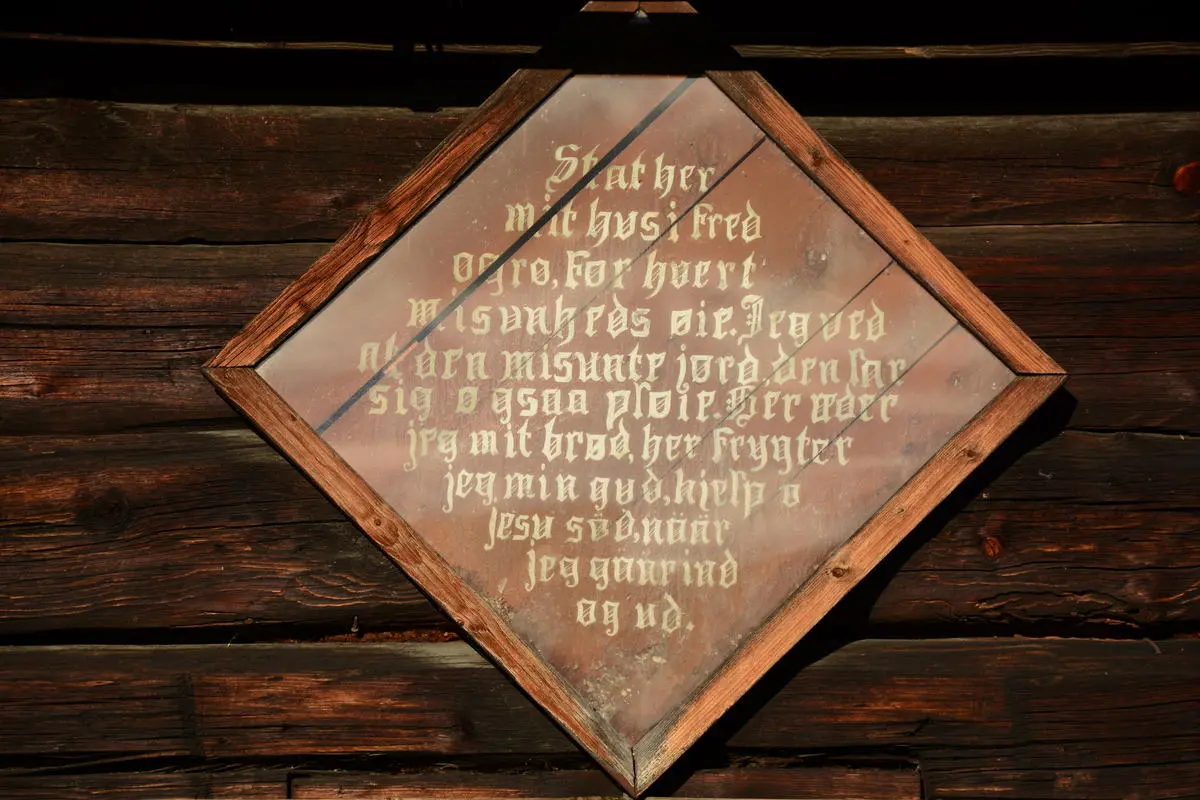 Stat her
mit hus i Fred
og ro, For hvert
misunheds øie. Jeg ved
at den misunte jord den lar
sig ogsaa pløie. Her æder
jeg mit brød, her Frygter
jeg min gud, hjelp o
Jesu södnäär
jeg gänrind
og ud.